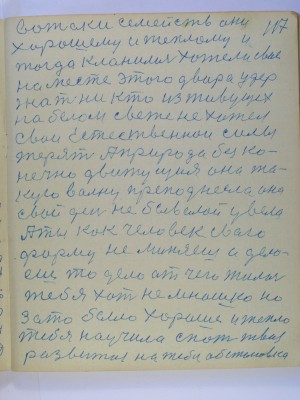 вотски семейств они 117
хорошему и теплому и
тогда кланился хотел и свае
на месте этого двара удер
жат ни кто из живущех
на белом свете не хотел
свои естественнои силы
терят А природа бес ко-
нечно движущия она та-
кую валну преподнесла она
свой дет не большой увела
А ты как человек сваго
форму не миняеш и дею-
еш то дело от чего жилос
тебя хот не мношко но
зато было хорошо и тепло
тебя научила
развитая на тебя обстоновка